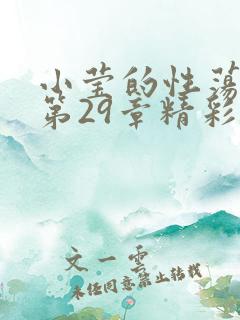 小莹的性荡
第29章精彩
文一云
未经同意禁止转载